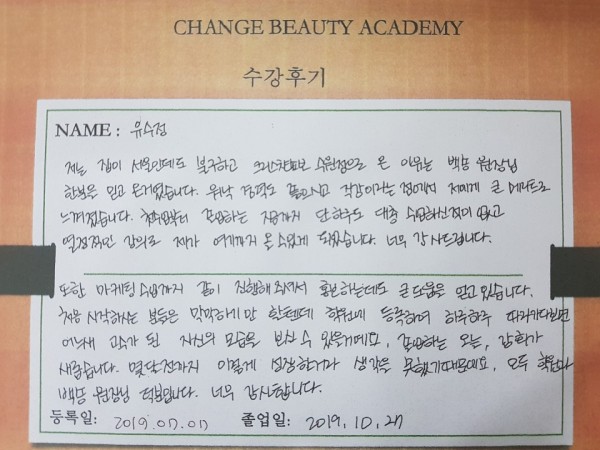 CHANGE BEAUTY ACADEMY
수강후기
NAME : 유수정
저는 집이 서울인데도 불구하고 수원점으로 온 이유는 백송 원장님
한분을 믿고 온거였습니다. 워낙 경력도 길으시고 작가이라는 점에서 저에게 큰 메리트로
느껴졌습니다. 첫수업부터 졸업하는 지금까지 단 하루도 대충 수업하신적이 없고
열정적인 강의로 제가 여기까지 올 수있게 되었습니다. 너무 감사드립니다.
또한 마케팅수업까지 같이 진행해 주셔서 홍보하는데도 큰 도움을 얻고있습니다.
처음 시작하시는 분들은 막막하기만 할텐데 학원에 등록하여 하루하루 따라가다보면
어느새 고수가 된 자신의 모습을 보실 수 있을거예요, 졸업하는 오늘, 감회가
새롭습니다. 몇달전까지 이렇게 성장할거라 생각을 못했기때문에요, 모두 학원과
백송 원장님 덕분입니다. 너무 감사합니다.
등록일: 2019.07.07 졸업일: 2019.10.27